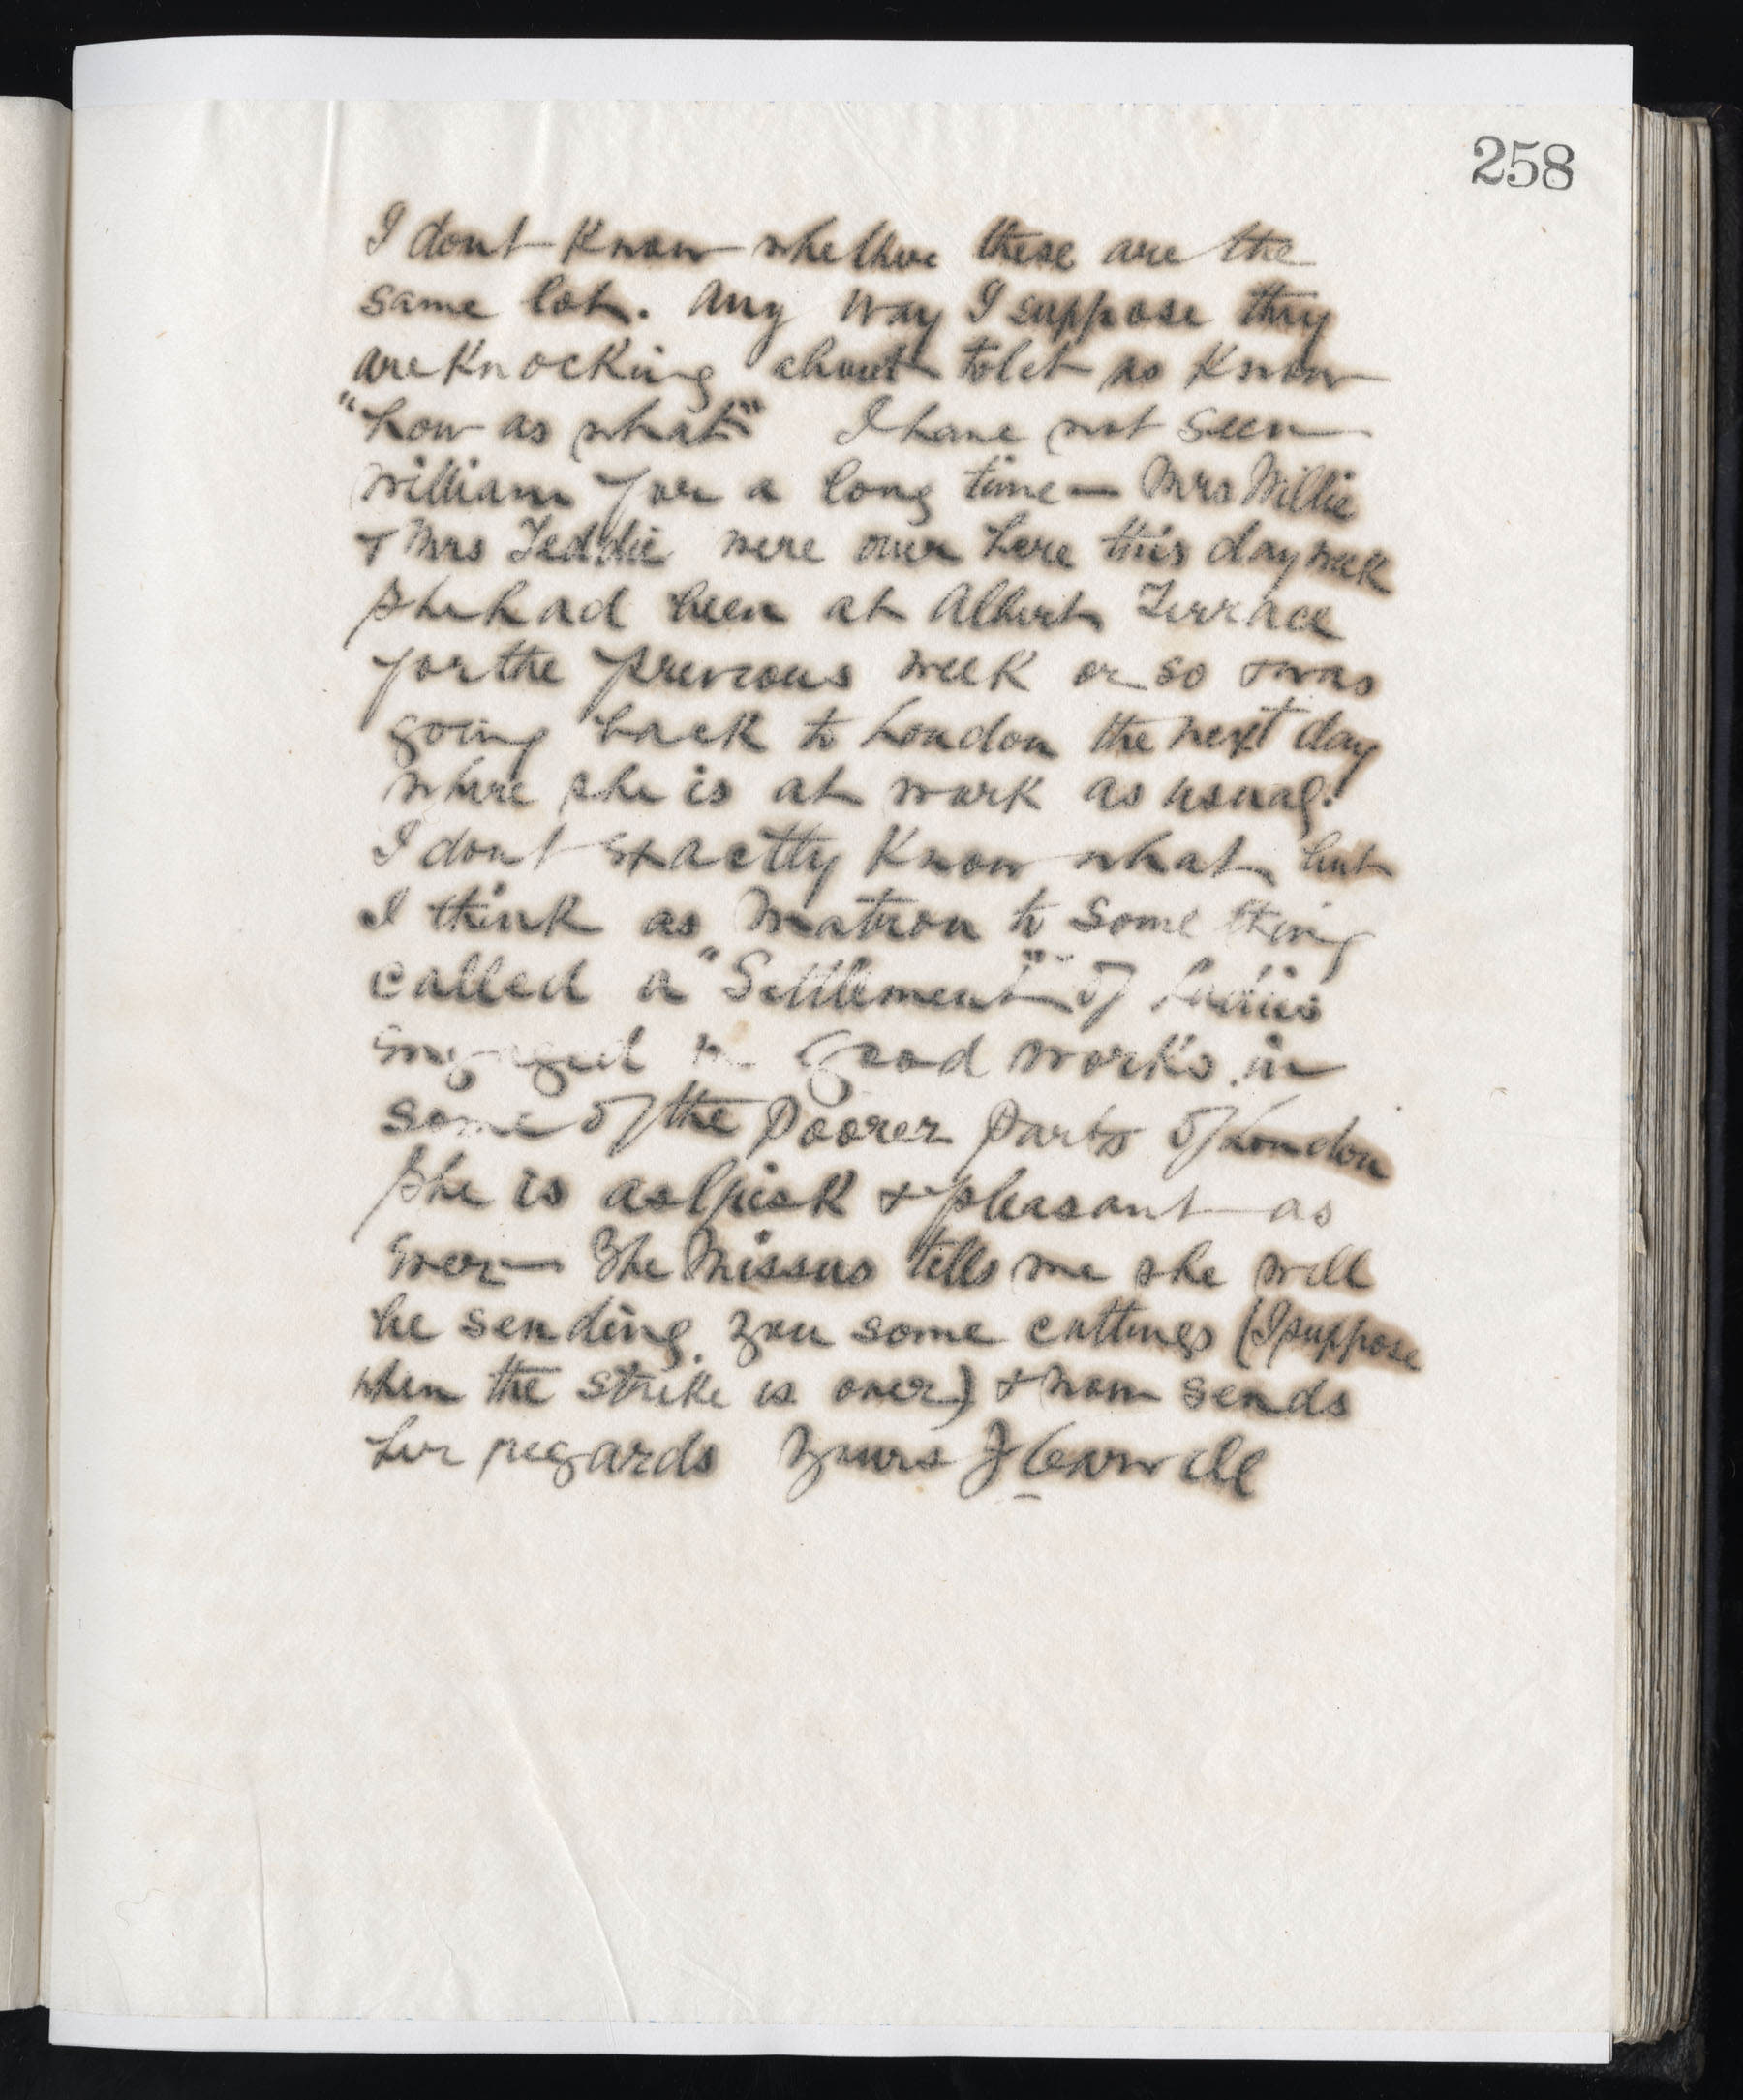 258
I dont know whether these are the
same lot. Any way I suppose they
are knocking about to let as know
"how as what" I have not seen
William for a long time — Mrs Willie
& Mrs Teddie were over here this day week
she had been at Albert Terrace
for the previous week or so & was
going back to London the next day
where she is at work as usual.
I dont exactly know what but
I think as Matron to some thing
called a "Settlement" of Ladies
engaged in good works in
some of the poorer parts of London
she is as brisk & pleasant as
ever — The Missus tells me she will
be sending you some cuttings (I suppose
when the strike is over) & now sends
her regards Yours J